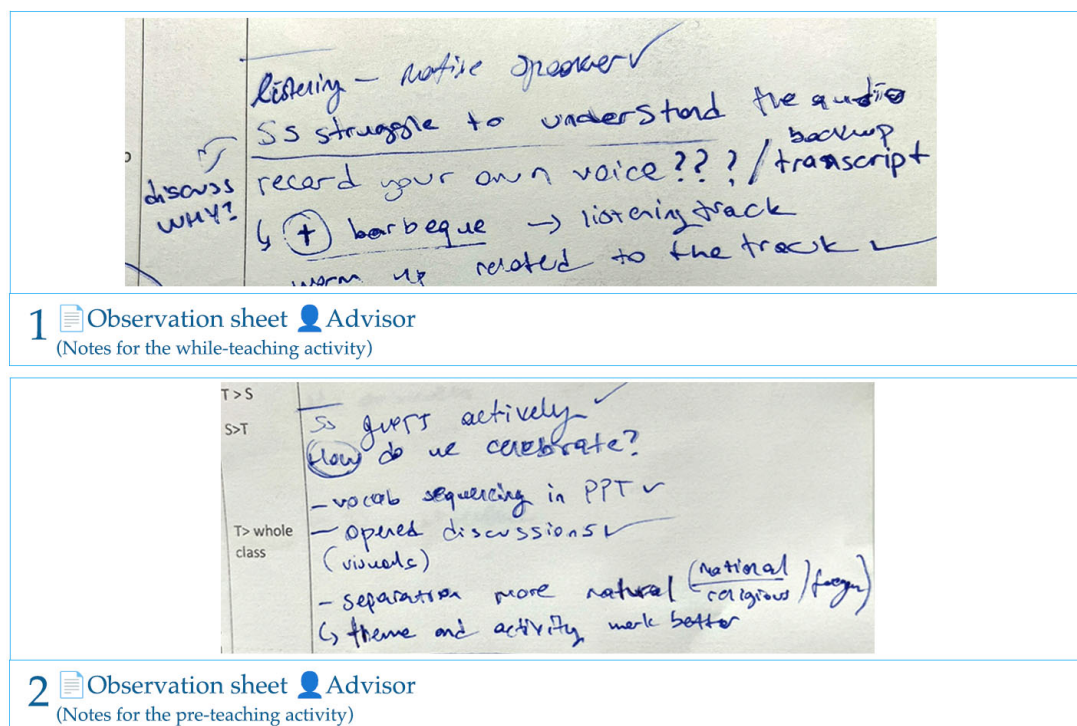 listening – native speaker ✓
Ss struggle to understand the audio
backup
discuss WHY?
record your own voice??? / transcript
↳ (+) barbeque → listening track
warm up related to the track ✓
1 📄Observation sheet 👤Advisor
(Notes for the while-teaching activity)
T > S
Ss guess actively ✓
S>T
How do we celebrate?
– vocab sequencing in PPT ✓
T> whole class
– opened discussions ✓
(visuals)
– separation more natural (national / religious / foreign)
↳ theme and activity work better
2 📄Observation sheet 👤Advisor
(Notes for the pre-teaching activity)